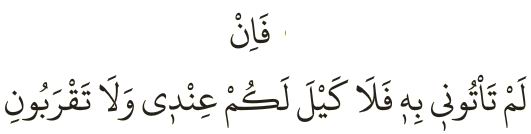 فَاِنْ
لَمْ تَأْتُونٖي بِهٖ فَلَا كَيْلَ لَكُمْ عِنْدٖي وَلَا تَقْرَبُونِ